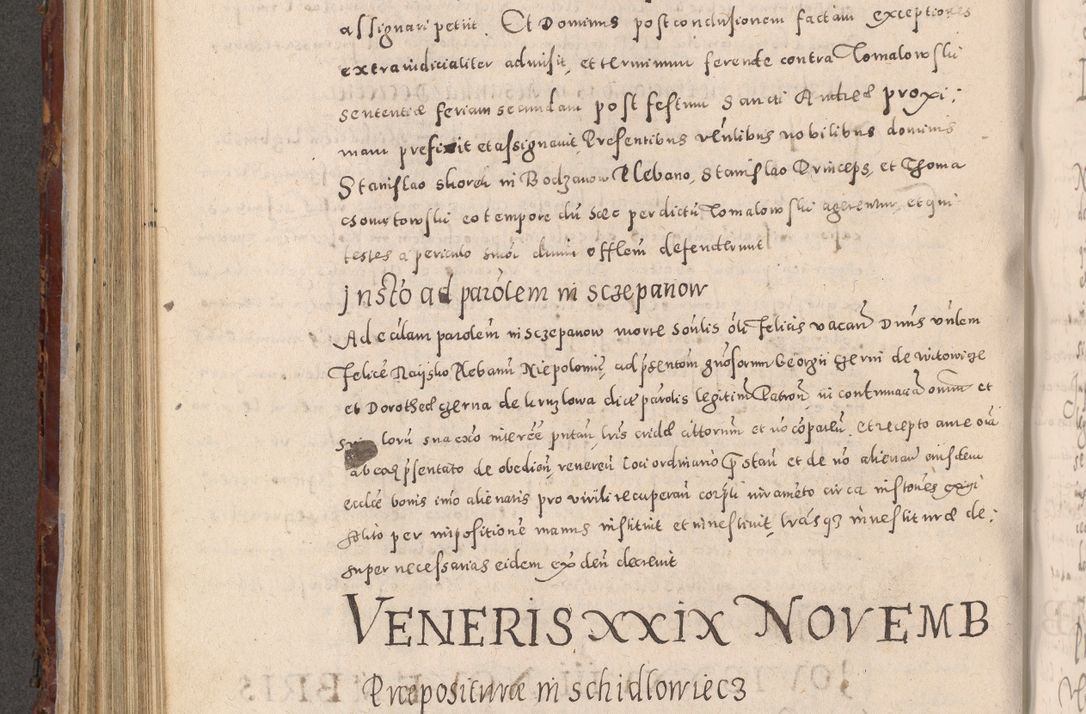 assignari petiit. Et Dominus post conclusionem factam exceptiones
extraiudicialiter admisit, et terminum ferende contra Tomalowski
sententiæ feriam secundam post festum Sancti Andreæ proxi:
mam prefixit et assignauit, Presentibus vēnlibus nobilibus dominis
Stanislao skorek in Bodzanow Plebano, Stanislao Princeps, et Thoma
csomętowski eo tempore dū sac per dictū Tomalowski agerentur, et qui
testes a periculo offlom defenderunt
Insto ad parolem in Sczepanow
Ad ecclam parolem in Sczepanow morte solis oli Felicis vacan Dnus vnlem
Felicē Raysko Plebanū Niepolomi, ad psentom gnosorum Georgii gerni de Witowicze
et Dorotheæ czerna de kruzlowa dicte parolis legitim Patron in continuaca omni et
lorū sua coxo interēe putan, lris cridæ cittorum et nō coparen, et recepto ante oia
ab eoq psentato de obedien, reueren loci ordinario pstan et de nō alienan eiusdem
ecclie bonis imo alienatis pro virili recuperan corpli iuramēto circa instones exgi
solito per impositione manus instituit et inuestiuit, lrasq3 inuestituræ de:
super necessarias eidem ex den decreuit
VENERIS XXIX NOVEMB
Præpositure in schidlowiecz